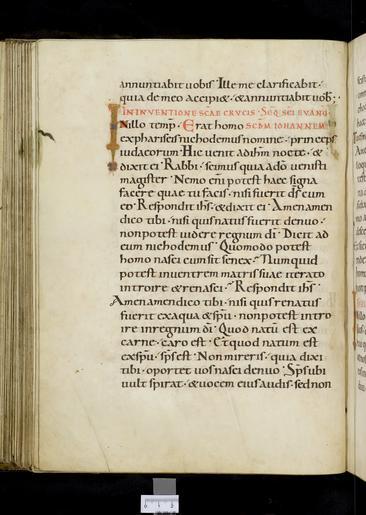 annuntiabit uobis. Ille me clarificabit.
quia de meo accipi& . & annuntiabit uob;
IN INVENTIONE SCAE CRUCIS. Seq. sci evang.
In illo temp. Erat homo SCDM IOHANNEM
ex phariseis nichodemus nomine. princeps
iudaeorum. Hic uenit ad ihm nocte. &
dixit ei. Rabbi. scimus quia a do uenisti
magister. Nemo eni potest haec signa
facere quae tu facis. nisi fuerit ds cum
eo. Respondit ihs. & dixit ei. Amen amen
dico tibi. nisi quis natus fuerit denuo.
non potest uidere regnum di. Dicit ad
eum nichodemus. Quomodo potest
homo nasci cum sit senex. Numquid
potest in uentrem matris suae iterato
introire & renasci. Respondit ihs.
Amen amen dico tibi. nisi quis renatus
fuerit ex aqua & spu. non potest intro
ire in regnum di. Quod natu est ex
carne. caro est. Et quod natum est
ex spu. sps est. Non mireris. quia dixi
tibi. oportet uos nasci denuo. Sps ubi
uult spirat. & uocem eius audis. sed non